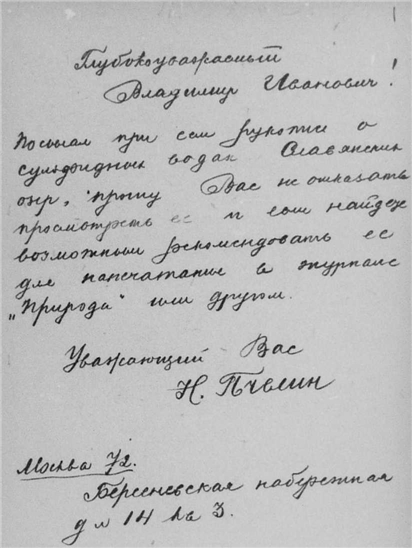 Глубокоуважаемый
Владимир Иванович!
Посылая при сем рукопись о
сульфидных водах Славянских
озер, прошу Вас не отказать
просмотреть ее и если найдете
возможным рекомендовать ее
для напечатания в журнале
„Природа“ или другом.
Уважающий Вас
Н. Пчелин
Москва 72.
Берсеневская набережная
д № 14 кв 3.